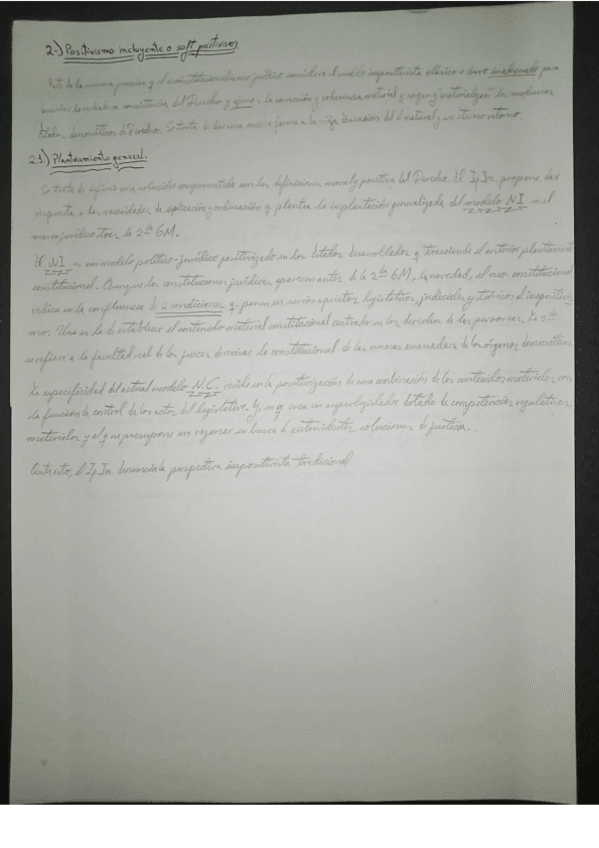 2-) Positivismo incluyente o soft positivism
Parte de la misma premisa y el constitucionalismo jurídico considera el modelo iuspositivista clásico o duro inadecuado para
la consistencia del Derecho y ajeno a la corrección y coherencia material q exigen y "materializan" los modernos
Estados democráticos de Derecho. Se trata de dar una nueva forma a la vieja vocación del d. natural y su eterno retorno.
2.1) Planteamiento general.
Se trata de definir una solución comprometida con las definiciones moral y positiva del Derecho. El Ip.In. propone dar
respuesta a las necesidades de aplicación y ordenación q plantea la implantación generalizada del modelo NI en el
marco jurídico tras la 2ª GM.
El NI es un modelo político-jurídico positivizado en los Estados desarrollados q trasciende el anterior planteamiento
constitucional. Aunque las constituciones jurídicas aparecen antes de la 2ª GM, la novedad, el neo-constitucional
radica en la confluencia de 2 condiciones q ponen en acción a juristas, legislativos, judiciales y teóricos el iuspositivis-
mo. Una es la de establecer el contenido material constitucional centrado en los derechos de las personas. La 2ª
se refiere a la facultad real de los jueces de revisar la constitucional de las normas emanadas de los órganos democráticos.
La especificidad del actual modelo N.C. reside en la positivización de una combinación de los contenidos materiales con
la función de control de los actos del legislativo. Y, se crea un superlegislador dotado de competencias regulativas
materiales y al q se presupone un esfuerzo en busca de soluciones de justicia.
Ante esto, el Ip.In. denuncia la perspectiva iuspositivista tradicional